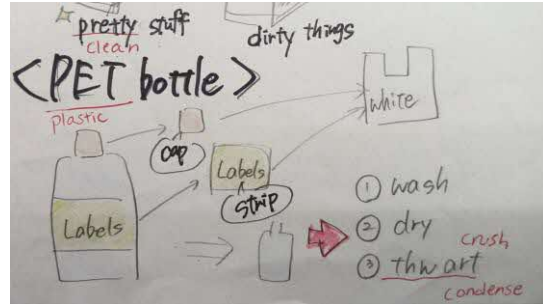 pretty stuff
clean
dirty things
<PET bottle>
plastic
cap
white
Labels
strip
Labels
① wash
② dry
crush
③ thwart
condense